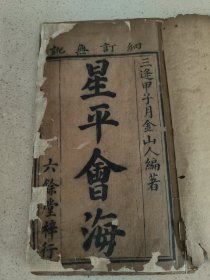 細訂無訛
三逢甲子月金山人編著
星平會海
六餘堂梓行